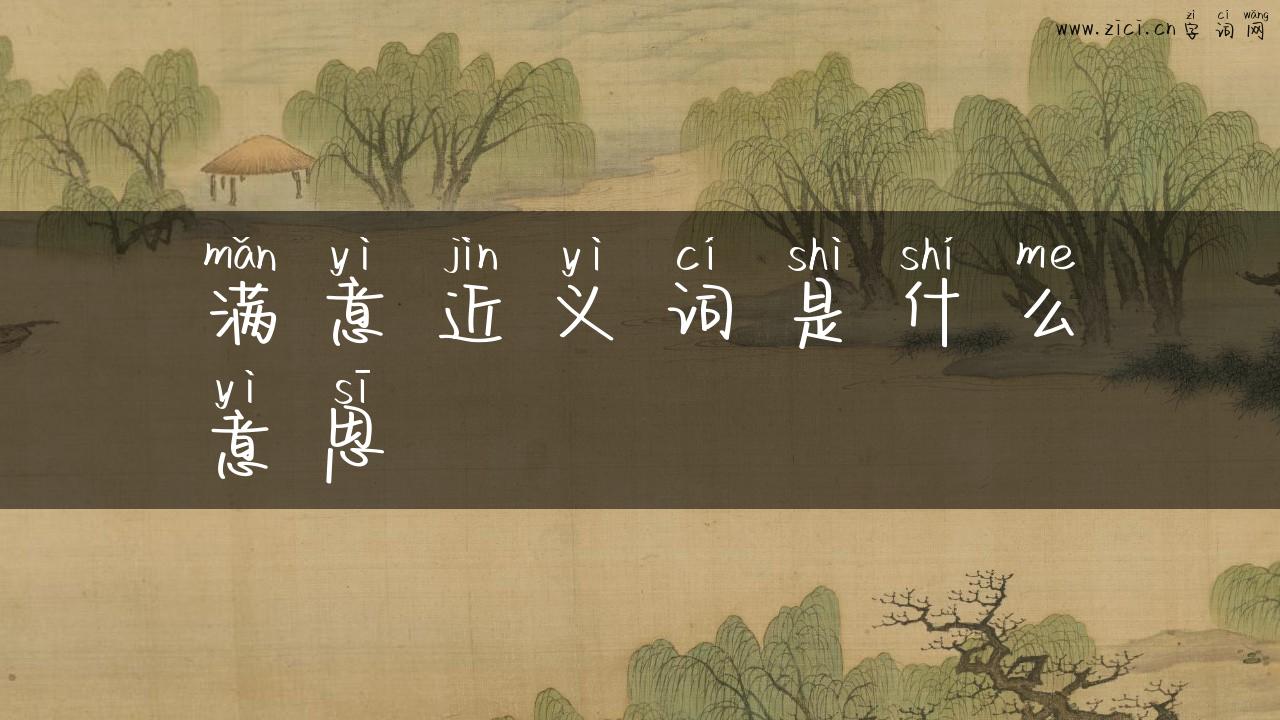 zì cí wǎng
www.zici.cn 字词网
mǎn yì jìn yì cí shì shí me
满意近义词是什么
yì sī
意思